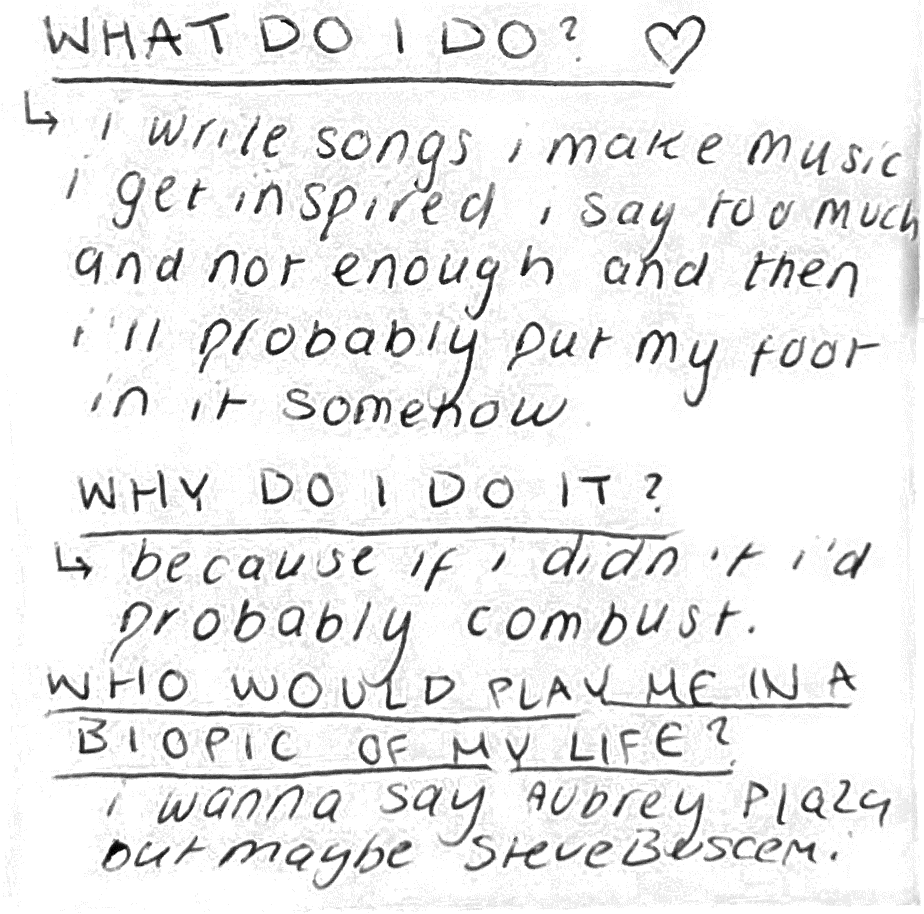 WHAT DO I DO? ♡
↳ i write songs i make music
i get inspired i say too much
and not enough and then
i'll probably put my foot
in it somehow
WHY DO I DO IT?
↳ because if i didn't i'd
probably combust.
WHO WOULD PLAY ME IN A
BIOPIC OF MY LIFE?
i wanna say Aubrey Plaza
but maybe Steve Buscemi